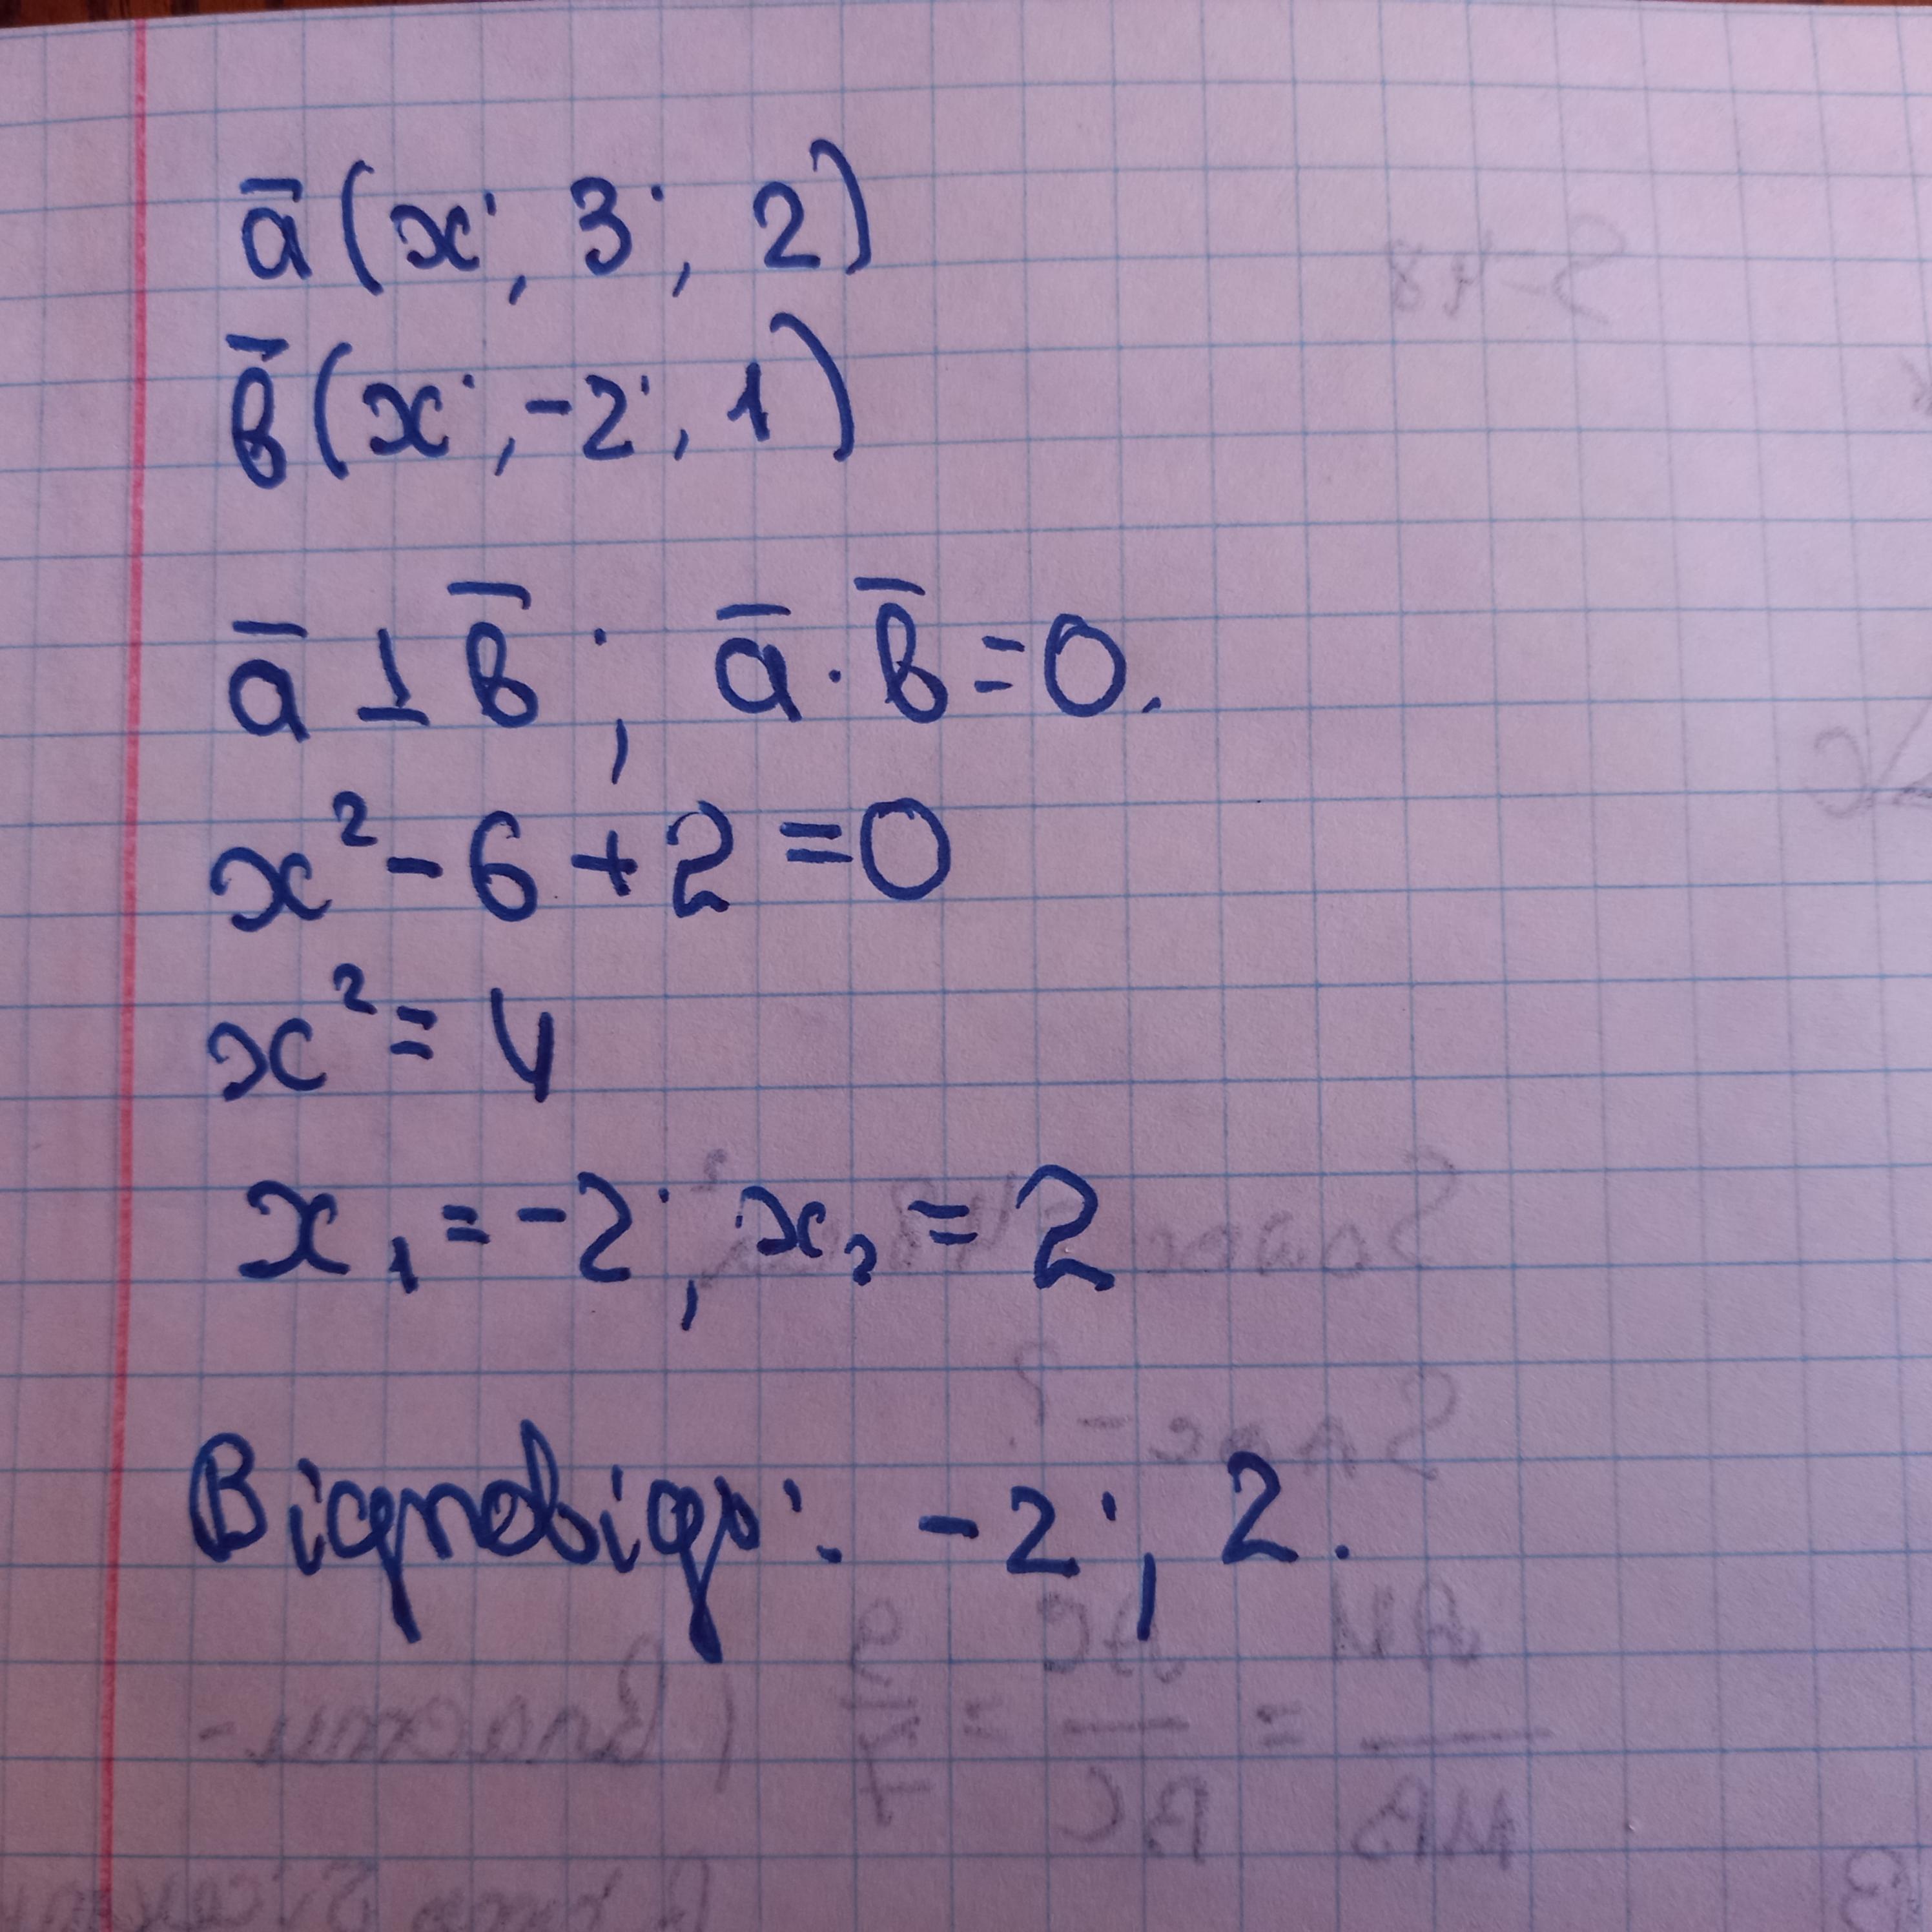 a̅ (x; 3; 2)
b̅ (x; -2; 1)
a̅ ⊥ b̅; a̅ · b̅ = 0.
x² - 6 + 2 = 0
x² = 4
x₁ = -2; x₂ = 2
Відповідь: -2; 2.